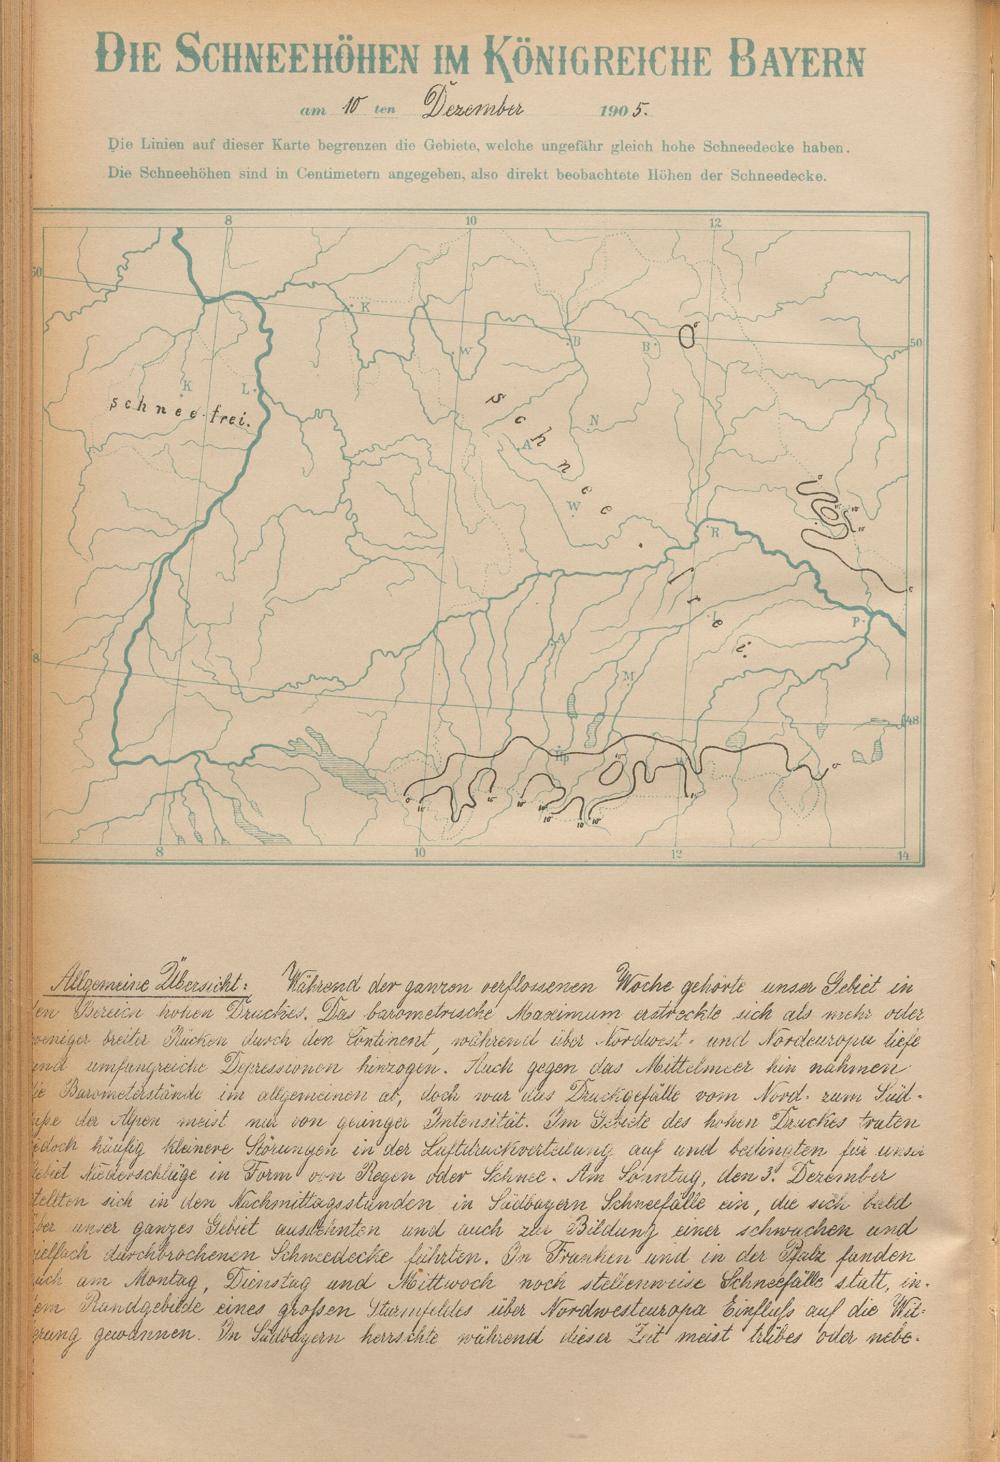 DIE SCHNEEHÖHEN IM KÖNIGREICHE BAYERN
am 10 ten Dezember 1905.
Die Linien auf dieser Karte begrenzen die Gebiete, welche ungefähr gleich hohe Schneedecke haben.
Die Schneehöhen sind in Centimetern angegeben, also direkt beobachtete Höhen der Schneedecke.
8 10 12
50
K
50
W B B
K L
schnee-frei.
schnee-frei.
N
A
W
R
P
A
8
M
48
Hp
8 10 12 14
Allgemeine Übersicht: Während der ganzen verflossenen Woche gehörte unser Gebiet in
en Bereich hohen Druckes. Das barometrische Maximum erstreckte sich als mehr oder
weniger breiter Rücken durch den Continent, während über Nordwest- und Nordeuropa tiefe
und umfangreiche Depressionen hinzogen. Auch gegen das Mittelmeer hin nahmen
ie Barometerstände im allgemeinen ab, doch war das Druckgefälle vom Nord- zum Süd-
der Alpen meist nur von geringer Intensität. Im Gebiete des hohen Druckes traten
edoch häufig kleinere Störungen in der Luftdruckverteilung auf und bedingten für unser
ebiet Niederschläge in Form von Regen oder Schnee. Am Sonntag, den 3. Dezember
tellten sich in den Nachmittagsstunden in Südbayern Schneefälle ein, die sich bald
ber unser ganzes Gebiet ausdehnten und auch zur Bildung einer schwachen und
ielfach durchbrochenen Schneedecke führten. In Franken und in der Pfalz fanden
uch am Montag, Dienstag und Mittwoch noch stellenweise Schneefälle statt, in-
em Randgebilde eines großen Sturmfeldes über Nordwesteuropa Einfluß auf die Wit-
erung gewannen. In Südbayern herrschte während dieser Zeit meist trübes oder nebe-